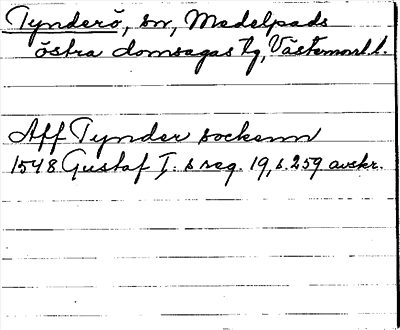 Tynderö, sn, Medelpads
östra domsagas tg, Västernorrl. l.
Aff Tynder sockenn
1548 Gustaf I:s reg. 19, s. 259 avskr.